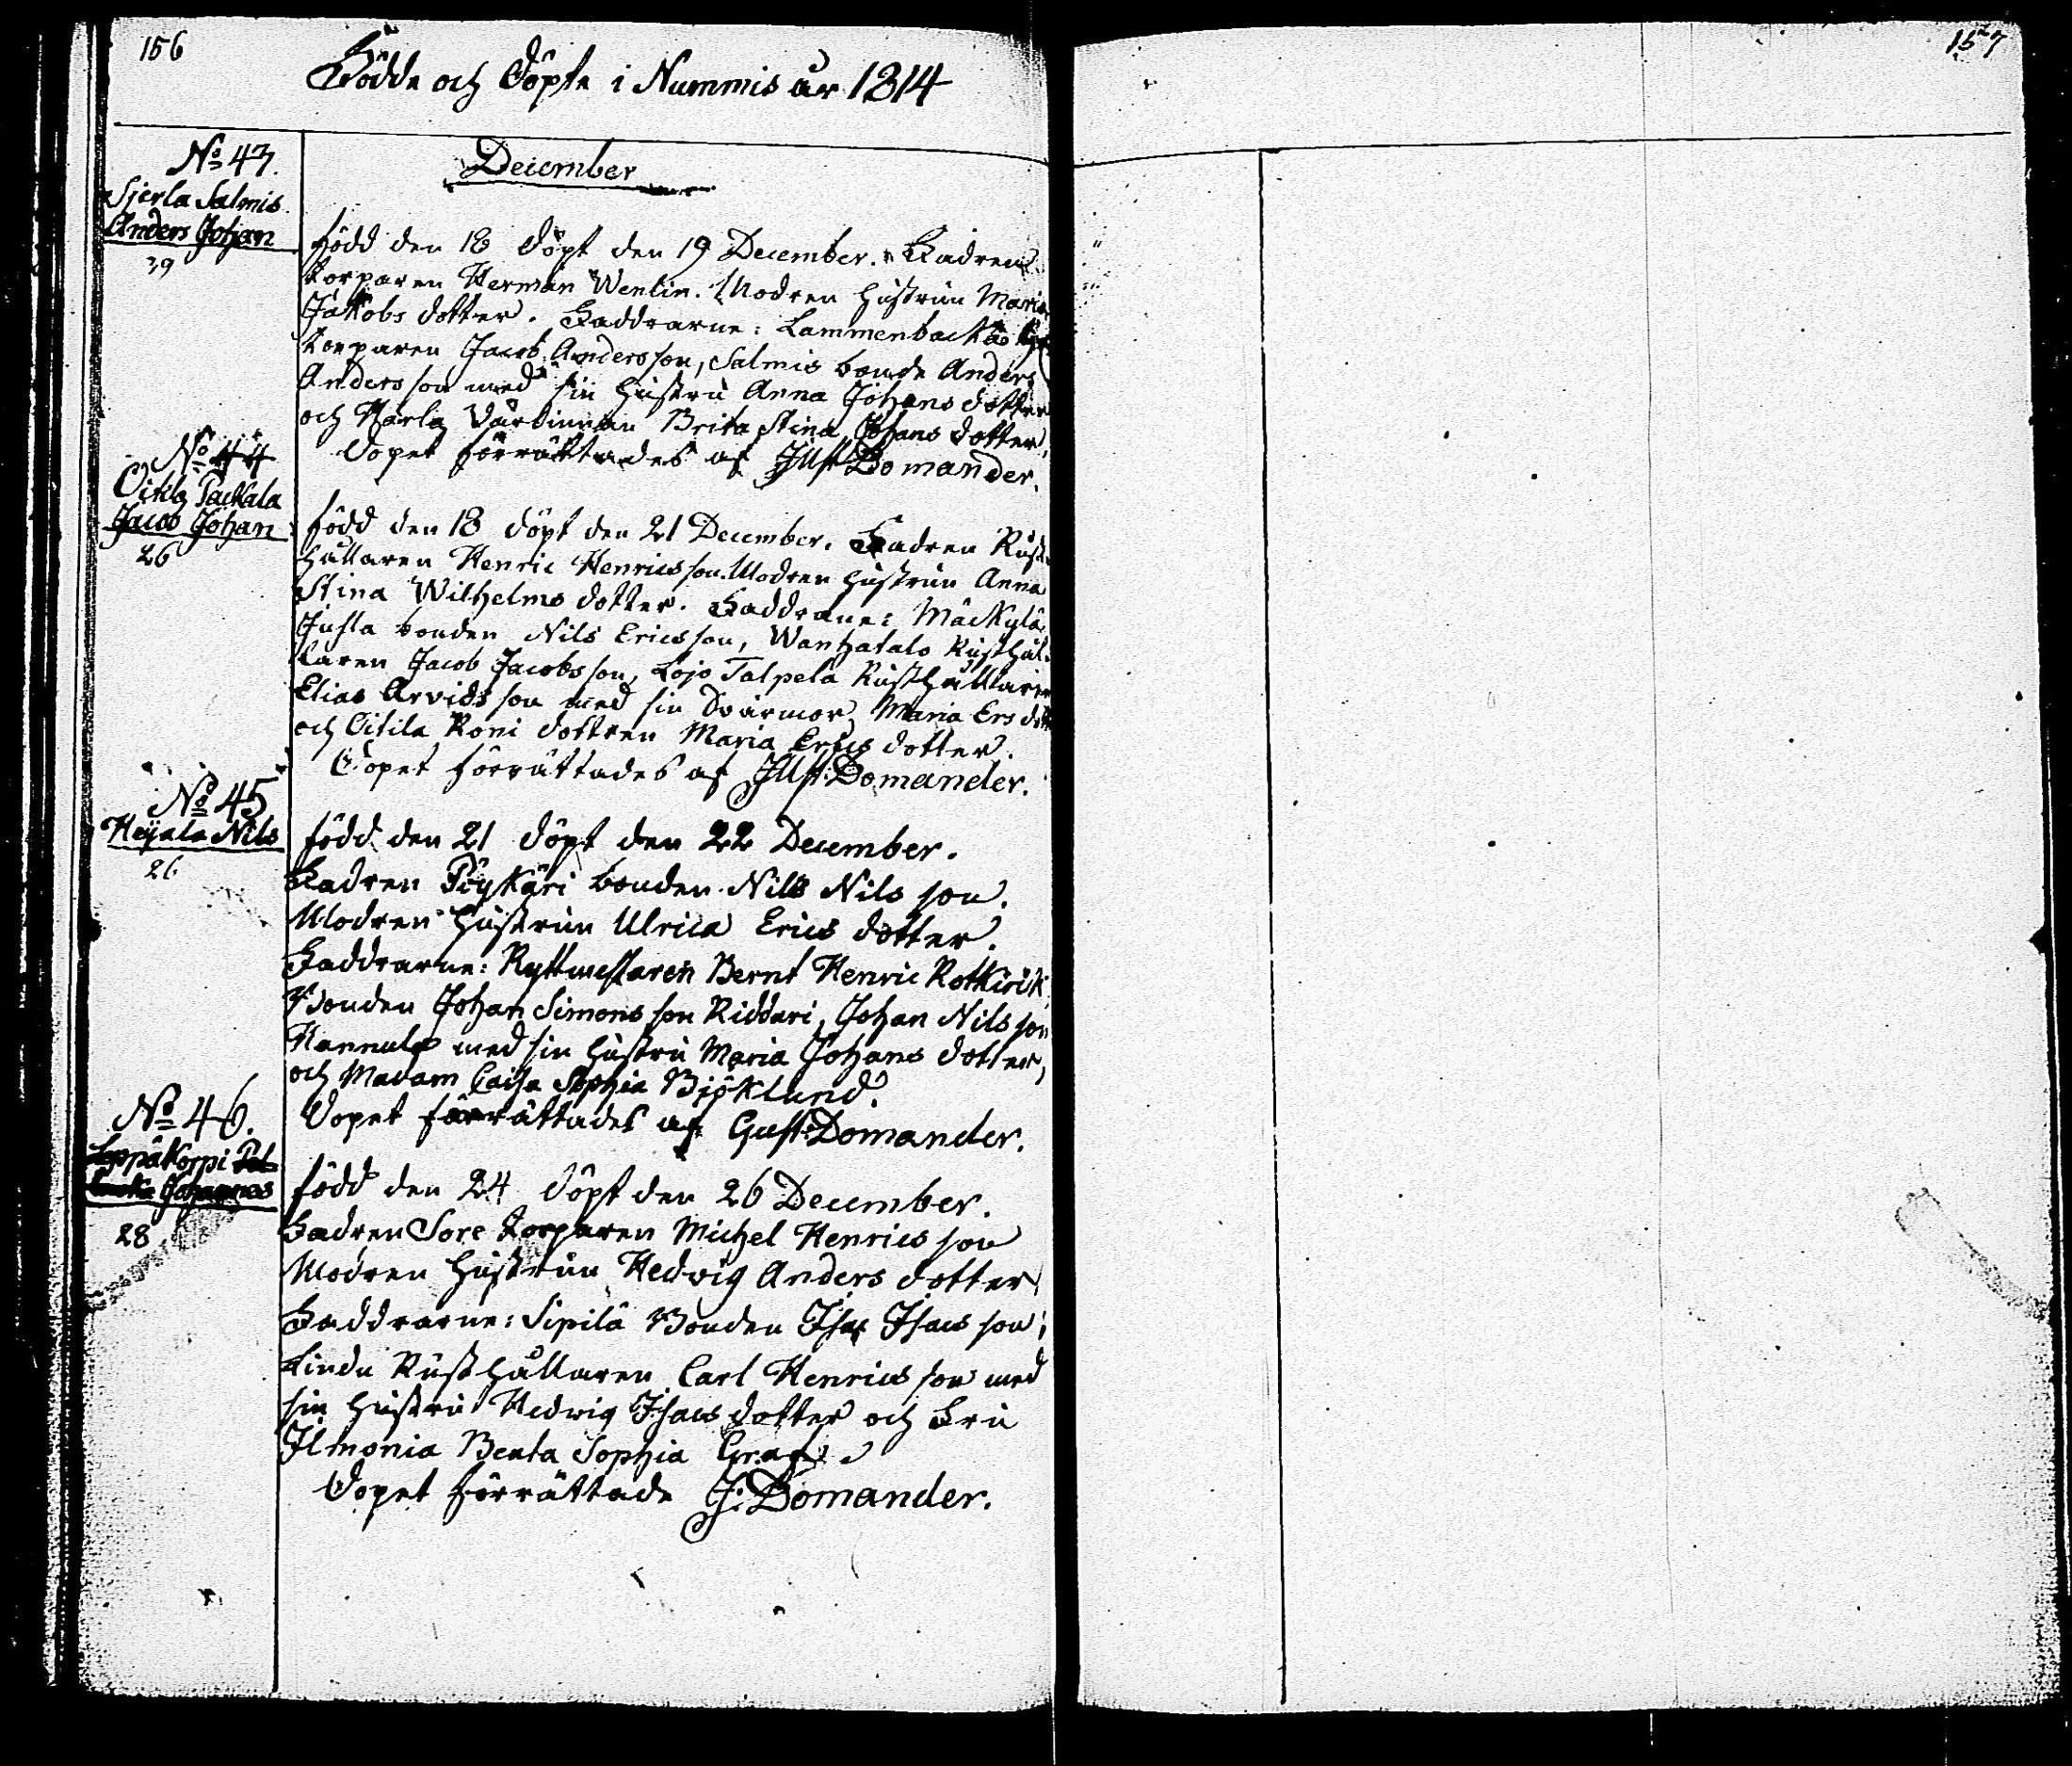 156
Födde och Döpte i Nummis år 1814
157
December
No 43.
Sjerla Salmis
Anders Johan
39
Född den 18 döpt den 19 December. Fadren
torparen Herman Wenlin. Modren hustrun Maria
Jakobs dotter. Faddrarne: Lammenbacka
torparen Jacob Andersson, Salmis bonde Anders
Andersson med sin hustru Anna Johans dotter
och Härlä Värdinnan Brita Stina Johans dotter.
Dopet förrättades af Just Domander.
No 44
Oitila Packala
Jacob Johan
26
född den 18 döpt den 21 December. Fadren Rust-
hållaren Henric Henricsson. Modren hustrun Anna
Stina Wilhelms dotter. Faddrane: Mäckylä
Jusla bonden Nils Ericsson, Wanhatalo Rusthål-
laren Jacob Jacobsson, Lojo Talpela Rusthållaren
Elias Arvidsson med sin Svärmor Maria Ers dott
och Oitila Roni dottren Maria Erics dotter.
Dopet förrättades af Just: Domander.
No 45
Heijala Nils
26
född den 21 döpt den 22 December.
Fadren Pöykäri bonden Nils Nils son.
Modren hustrun Ulrica Erics dotter.
Faddrarne: Ryttmestaren Bernt Henric Rotkirck
Bonden Johan Simons son Riddari, Johan Nilsson
Hannula med sin hustru Maria Johans dotter,
och Madam Caisa Sophia Bjöklund.
Dopet förrättades af Gust: Domander.
No 46.
Leppäkorpi
Johannes
28
född den 24 döpt den 26 December.
Fadren Sore torparen Michel Henrics son
Modren hustrun Hedvig Anders dotter
Faddrarne: Sipilä Bonden Isac Isacs son,
Lindu Rusthållaren Carl Henrics son med
sin hustru Hedvig Isacs dotter och Fru
Ilmonia Beata Sophia Graf.
Dopet förrättade J: Domander.